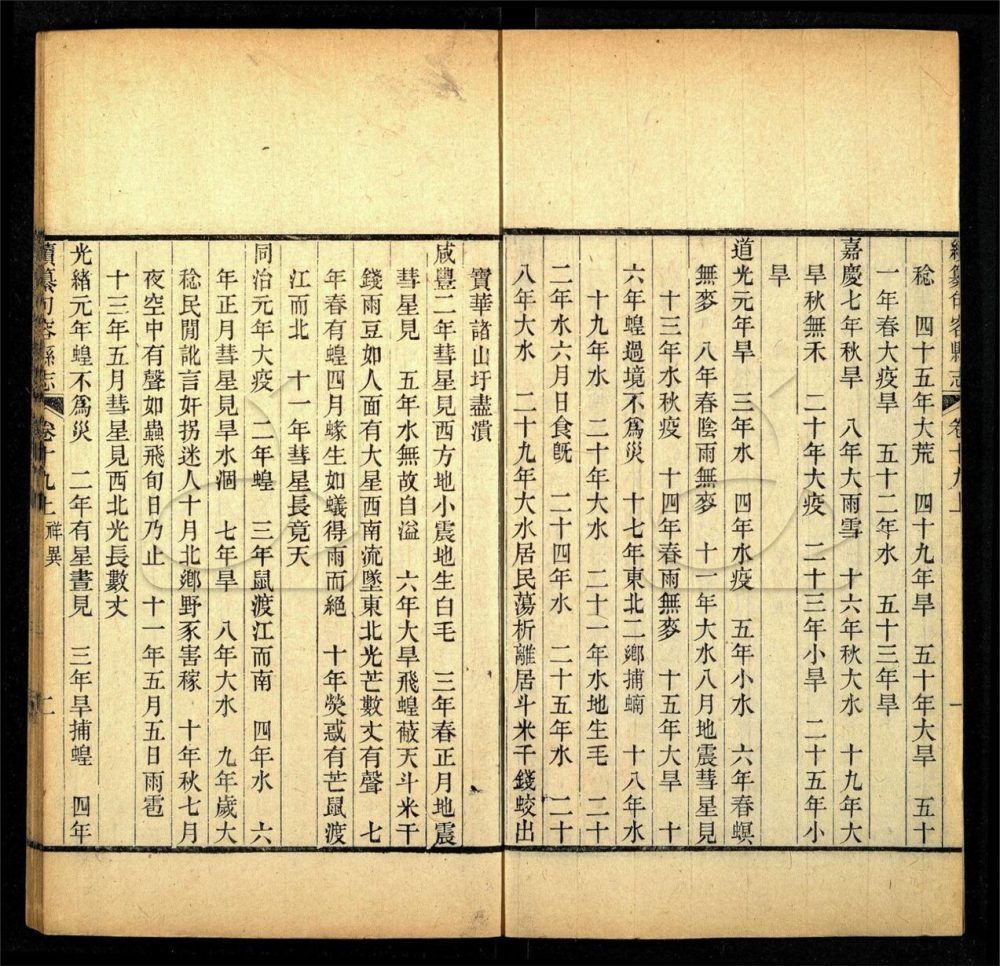 續纂句容縣志 卷十九上
稔 四十五年大荒 四十九年旱 五十年大旱 五十
一年春大疫旱 五十二年水 五十三年旱
嘉慶七年秋旱 八年大雨雪 十六年秋大水 十九年大
旱秋無禾 二十年大疫 二十三年小旱 二十五年小
旱
道光元年旱 三年水 四年水疫 五年小水 六年春螟
無麥 八年春陰雨無麥 十一年大水八月地震彗星見
十三年水秋疫 十四年春雨無麥 十五年大旱 十
六年蝗過境不爲災 十七年東北二鄉捕蝻 十八年水
十九年水 二十年大水 二十一年水地生毛 二十
二年水六月日食旣 二十四年水 二十五年水 二十
八年大水 二十九年大水居民蕩析離居斗米千錢蛟出
寶華諸山圩盡潰
咸豐二年彗星見西方地小震地生白毛 三年春正月地震
彗星見 五年水無故自溢 六年大旱飛蝗蔽天斗米千
錢雨豆如人面有大星西南流墜東北光芒數丈有聲 七
年春有蝗四月蝝生如蟻得雨而絕 十年熒惑有芒鼠渡
江而北 十一年彗星長竟天
同治元年大疫 二年蝗 三年鼠渡江而南 四年水 六
年正月彗星見旱水涸 七年旱 八年大水 九年歲大
稔民閒訛言奸拐迷人十月北鄉野豕害稼 十年秋七月
夜空中有聲如蟲飛旬日乃止 十一年五月五日雨雹
十三年五月彗星見西北光長數丈
光緒元年蝗不爲災 二年有星晝見 三年旱捕蝗 四年
續纂句容縣志 卷十九上 祥異 二